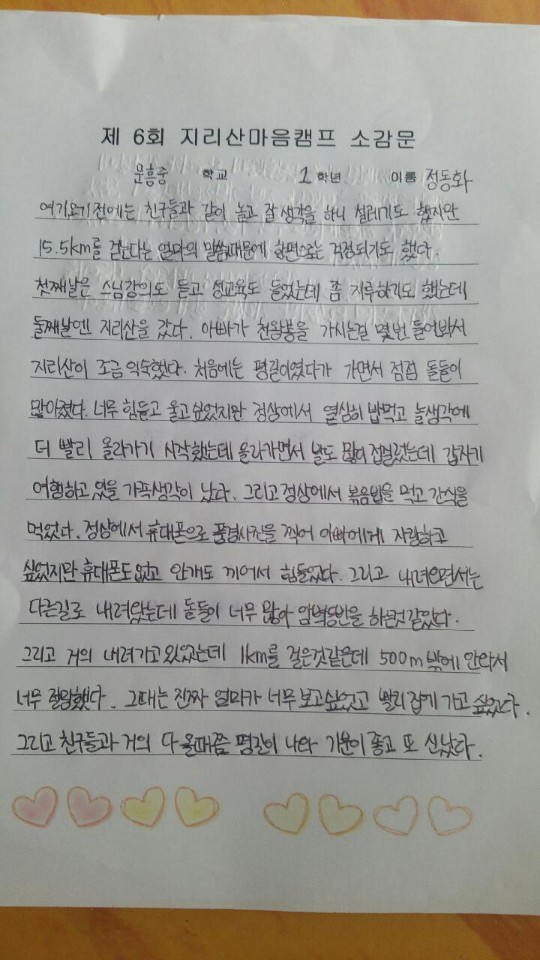 제 6회 지리산마음캠프 소감문
문흥중 학교 1 학년 이름 정동화
여기오기전에는 친구들과 같이 놀고 잘 생각을 하니 설레기도 했지만
15.5km를 걷는다는 엄마의 말씀때문에 한편으로는 걱정되기도 했다.
첫째날은 스님강의도 듣고 성교육도 들었는데 좀 지루하기도 했는데
둘째날엔 지리산을 갔다. 아빠가 천왕봉을 가시는걸 몇번 들어봐서
지리산이 조금 익숙했다. 처음에는 평길이였다가 가면서 점점 돌들이
많아졌다. 너무 힘들고 울고 싶었지만 정상에서 열심히 밥먹고 놀생각에
더 빨리 올라가기 시작했는데 올라가면서 발도 많이 접질렀는데 갑자기
여행하고 있을 가족생각이 났다. 그리고 정상에서 볶음밥을 먹고 간식을
먹었다. 정상에서 휴대폰으로 풍경사진을 찍어 아빠에게 자랑하고
싶었지만 휴대폰도 없고 안개도 끼어서 힘들었다. 그리고 내려오면서는
다른길로 내려왔는데 돌들이 너무 많아 암벽등반을 하는것 같았다.
그리고 거의 내려가고 있었는데 1km를 걸은것같은데 500m 밖에 안와서
너무 절망했다. 그때는 진짜 엄마가 너무 보고싶었고 빨리 집에 가고 싶었다.
그리고 친구들과 거의 다 올때쯤 평길이 나와 기분이 좋고 또 신났다.